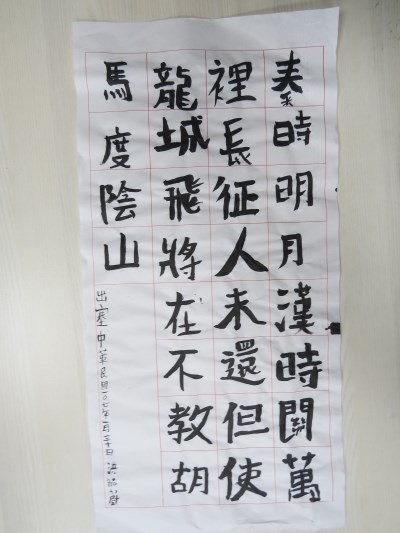 秦時明月漢時關萬
裡長征人未還但使
龍城飛將在不教胡
馬度陰山
出塞 中華民國一〇七年一月三十日